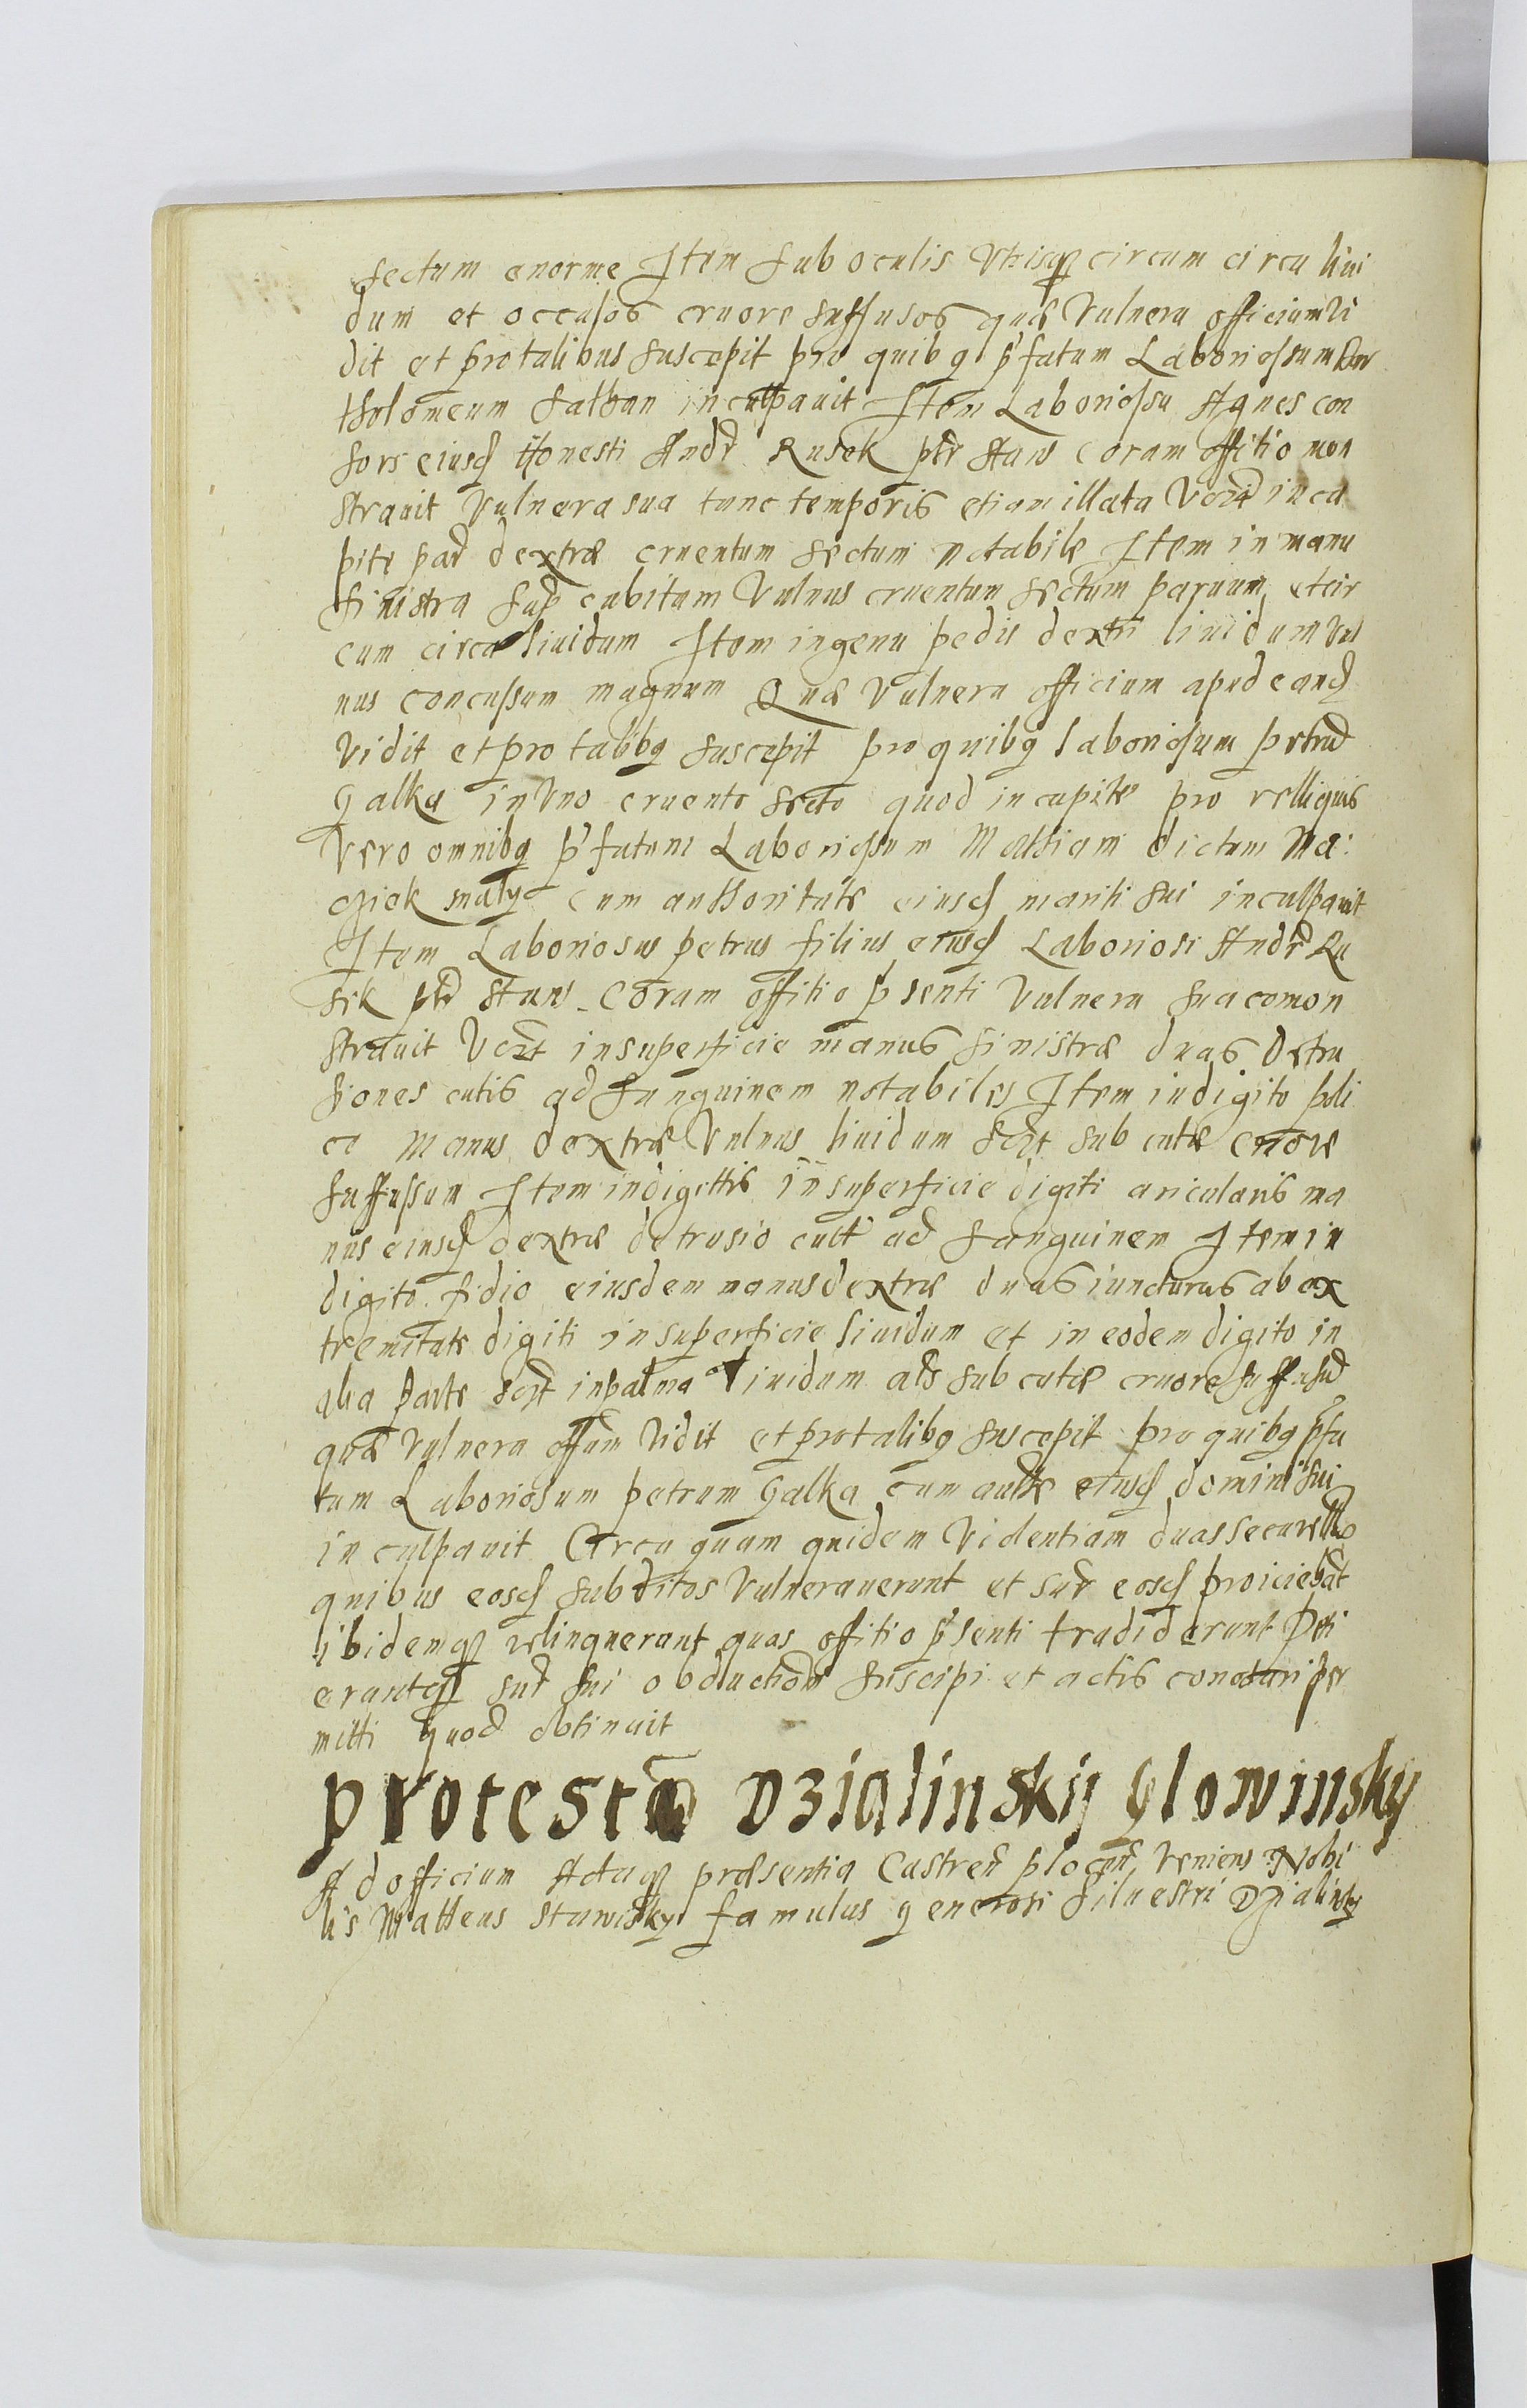 sectum enorme Item sub oculis Utrisq circum circa livi
dum et occulos cruore suffusos quæ Vulnera officium vi
dit et pro talibus suscepit pro quibq pfatum Laboriossum Bar
tholomeum inculpavit Item Laboriossa Agnes con
sors eiusd Honesti Andr Rusek ptr stans Coram offitio mon
stravit Vulnera sua tunc temporis etiam illata Vczt in ca
pite par dextræ cruentum sectum notabile Item in manu
sinistra sup cubitum Vulnus cruentum sectum parvum et cir
cum circa lividum Item in genu pedis dextri lividum Vul
nus concussum magnum Quæ Vulnera officium apud eand
Vidit et pro talibq suscepit pro quibq laboriosum petrum
Galka in Uno cruento secto quod in capite pro relliquis
Vero omnibq pfatum Laboriosum Mathiam dictum Ma
cziek malÿ Cum authoritate eiusd mariti sui inculpavit
Item Laboriosus petrus filius eiusd Laboriosi Andr Ru
sek ptr stans Coram offitio psenti Vulnera sua comon
stravit Vczt in superficie manus sinistræ duas Detru
siones cutis ad sanguinem notabiles Item in digito poli
ce Manus dextræ Vulnus lividum sczt sub cute cruore
suffussum Item in digittis in superficie digiti aricularis ma
nus eiusd dextræ detrusio cutt ad sanguinem Item in
digito fidio eiusdem manus dextræ duas iuncturas ab ex
tremitate digiti in superficie lividum et in eodem digito in
alia parte sczt in palma lividum als sub cute cruore suffusum
quæ Vulnera offum Vidit et pro talibq suscepit pro quibq pfa
tum Laboriosum petrum Galka cum autte eiusd domini sui
inculpavit Circa quam quidem Videntiam duas securellas
quibus eosd subditos Vulneraverunt et supr eosd proiiciebat
ibidemq relinquerunt quas offitio psenti tradiderunt Peti
eruntq supr sui obductiom suscipi et actis connotari per
mitti quod obtinuit
Protesta Dzialinskij Glowinsky
Ad officium Actaq præsentia Castren plocen Veniens Nobi
lis Mattheus Stawisky famulus generosi Silvestri Dzialinsky